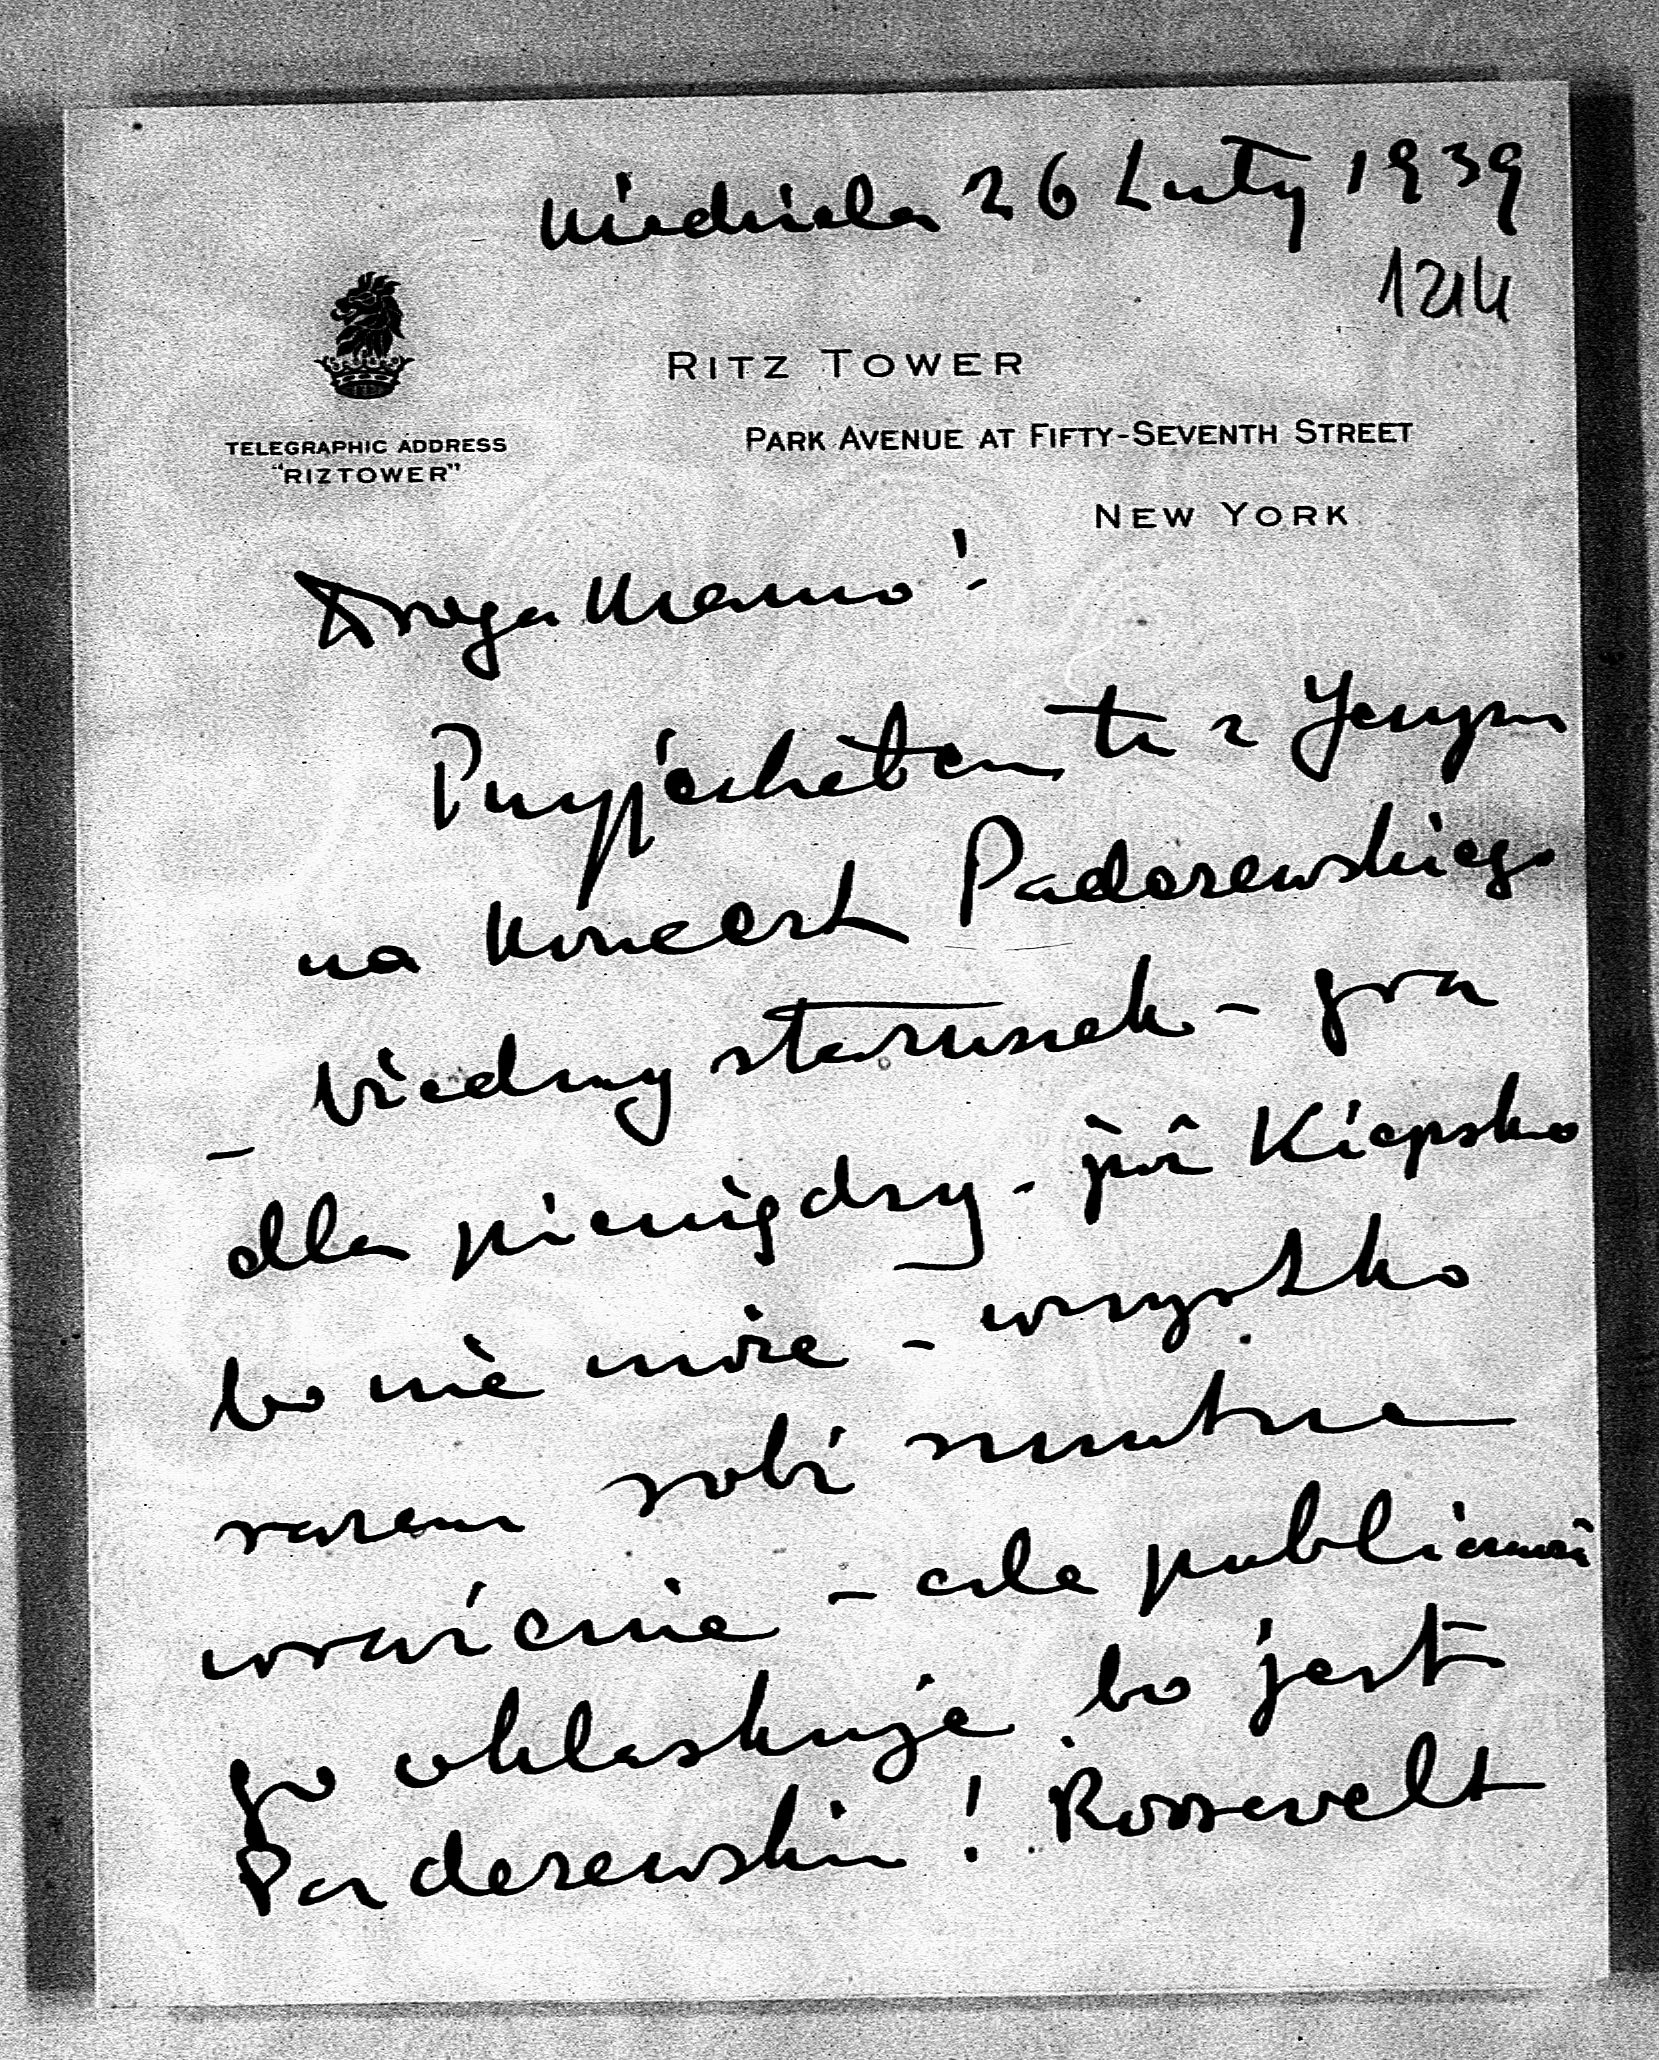 Niedziela 26 Luty 1939
1214
RITZ TOWER
PARK AVENUE AT FIFTY-SEVENTH STREET
TELEGRAPHIC ADDRESS
"RIZTOWER"
NEW YORK
Droga Mamo!
Przyjechałem tu z Jerzym
na koncert Paderewskiego
– biedny staruszek – gra
dla pieniędzy – już kiepsko
bo nie może – wszystko
razem robi smutne
wrażenie – ale publiczność
go oklaskuje bo jest
Paderewskim! Roosevelt